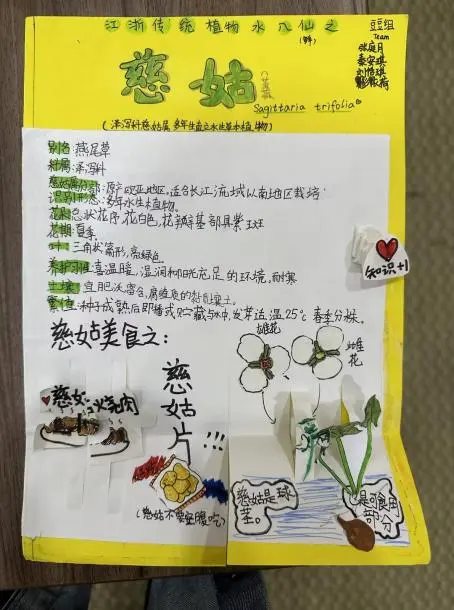 江浙传统植物水八仙之
豆豆组
Team
张庭月
秦安琪
刘恺琪
慈姑
Sagittaria trifolia
(泽泻科慈姑属多年生直立水生草本植物)
别名:燕尾草
科属:泽泻科
慈姑属分部:原产欧亚地区,适合长江流域以南地区栽培
识别形态:多年水生植物。
花期:总状花序,花白色,花瓣基部具紫斑
花期:夏季
叶:三角状箭形,亮绿色
养护习性:喜温暖,湿润和阳光充足的环境,耐寒
土壤:宜肥沃富含,腐殖质的黏质壤土。
繁殖:种子成熟后即播或贮藏与水中,发芽适温25℃ 春季分株。
知识+1
慈姑美食之:
雄花
雌花
慈姑烧肉
慈姑片!!!
(慈姑不要空腹吃)
慈姑是球茎。
是可食用部分